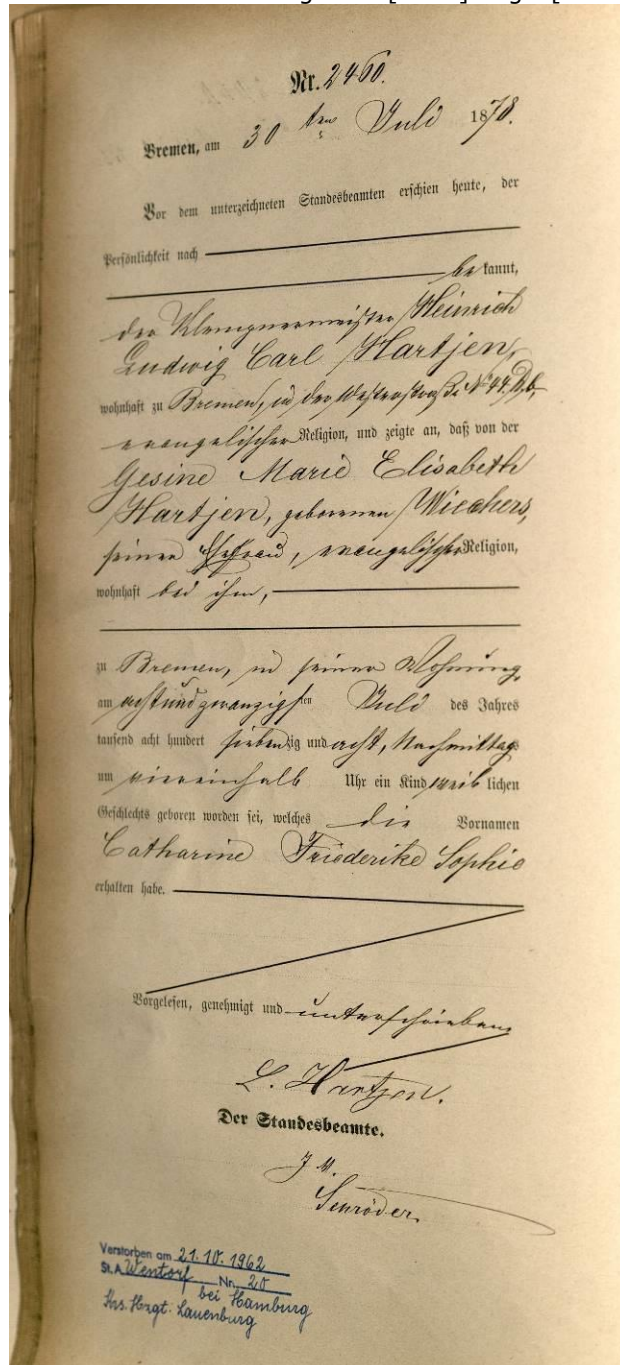 Nr. 2460.
Bremen, am 30 ten Juli 1878.
Vor dem unterzeichneten Standesbeamten erschien heute, der
Persönlichkeit nach
be kannt,
der Klempnermeister Heinrich
Ludwig Carl Hartjen,
wohnhaft zu Bremen, in der Westerstraße No 44,
evangelischer Religion, und zeigte an, daß von der
Gesine Marie Elisabeth
Hartjen, geborenen Wiechers,
seiner Ehefrau, evangelischer Religion,
wohnhaft bei ihm,
zu Bremen, in seiner Wohnung,
am achtundzwanzigsten Juli des Jahres
tausend acht hundert siebenzig und acht, Nachmittags
um viereinhalb Uhr ein Kind weib lichen
Geschlechts geboren worden sei, welches die Vornamen
Catharine Friederike Sophie
erhalten habe.
Vorgelesen, genehmigt und unterschrieben
L. Hartjen.
Der Standesbeamte.
Schröder.
Verstorben am 21.10.1962
St.A. Wentorf Nr. 20
bei Hamburg
Krs. Hzgt. Lauenburg